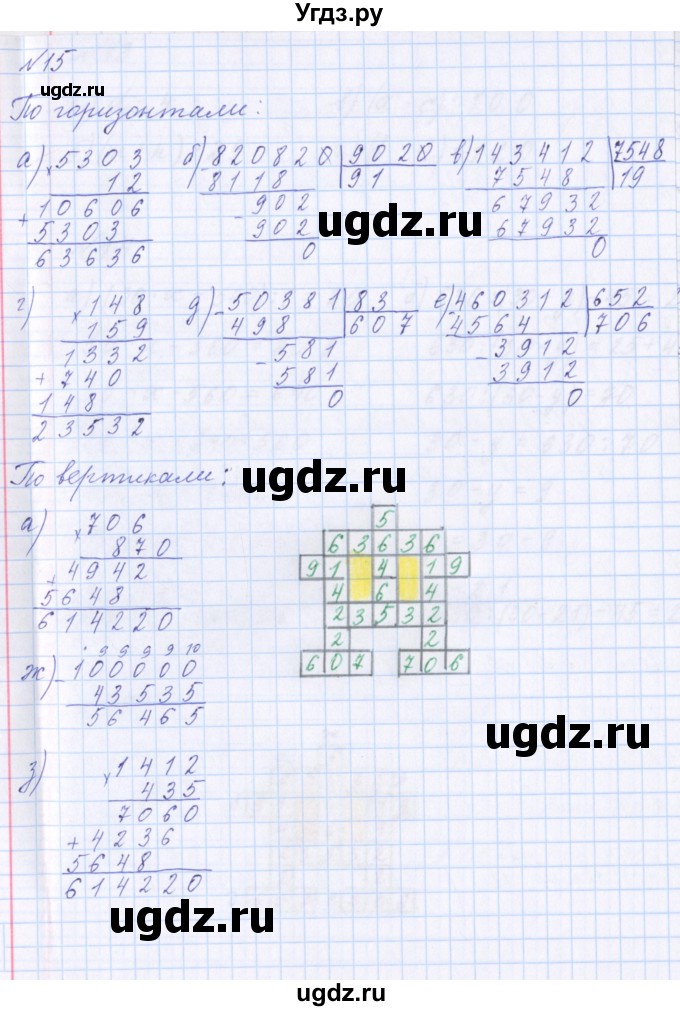 Угдз.ру
№15
ugdz.ru
По горизонтали:
а) × 5303
12
+ 10606
5303
63636
б) - 820820 | 9020
8118 | 91
- 902
902
0
в) - 143412 | 7548
7548 | 19
67932
67932
0
ugdz.ru
г) × 148
159
1332
+ 740
148
23532
д) - 50381 | 83
498 | 607
- 581
581
0
е) - 460312 | 652
4564 | 706
- 3912
3912
0
По вертикали:
ugdz.ru
а) × 706
870
+ 4942
5648
614220
5
6 3 6 3 6
9 1 4 1 9
4 6 4
2 3 5 3 2
2 2
6 0 7 7 0 6
ж) 9 9 9 9 10
- 100000
43535
56465
ugdz.ru
з) × 1412
435
7060
+ 4236
5648
614220
ugdz.ru
ugdz.ru